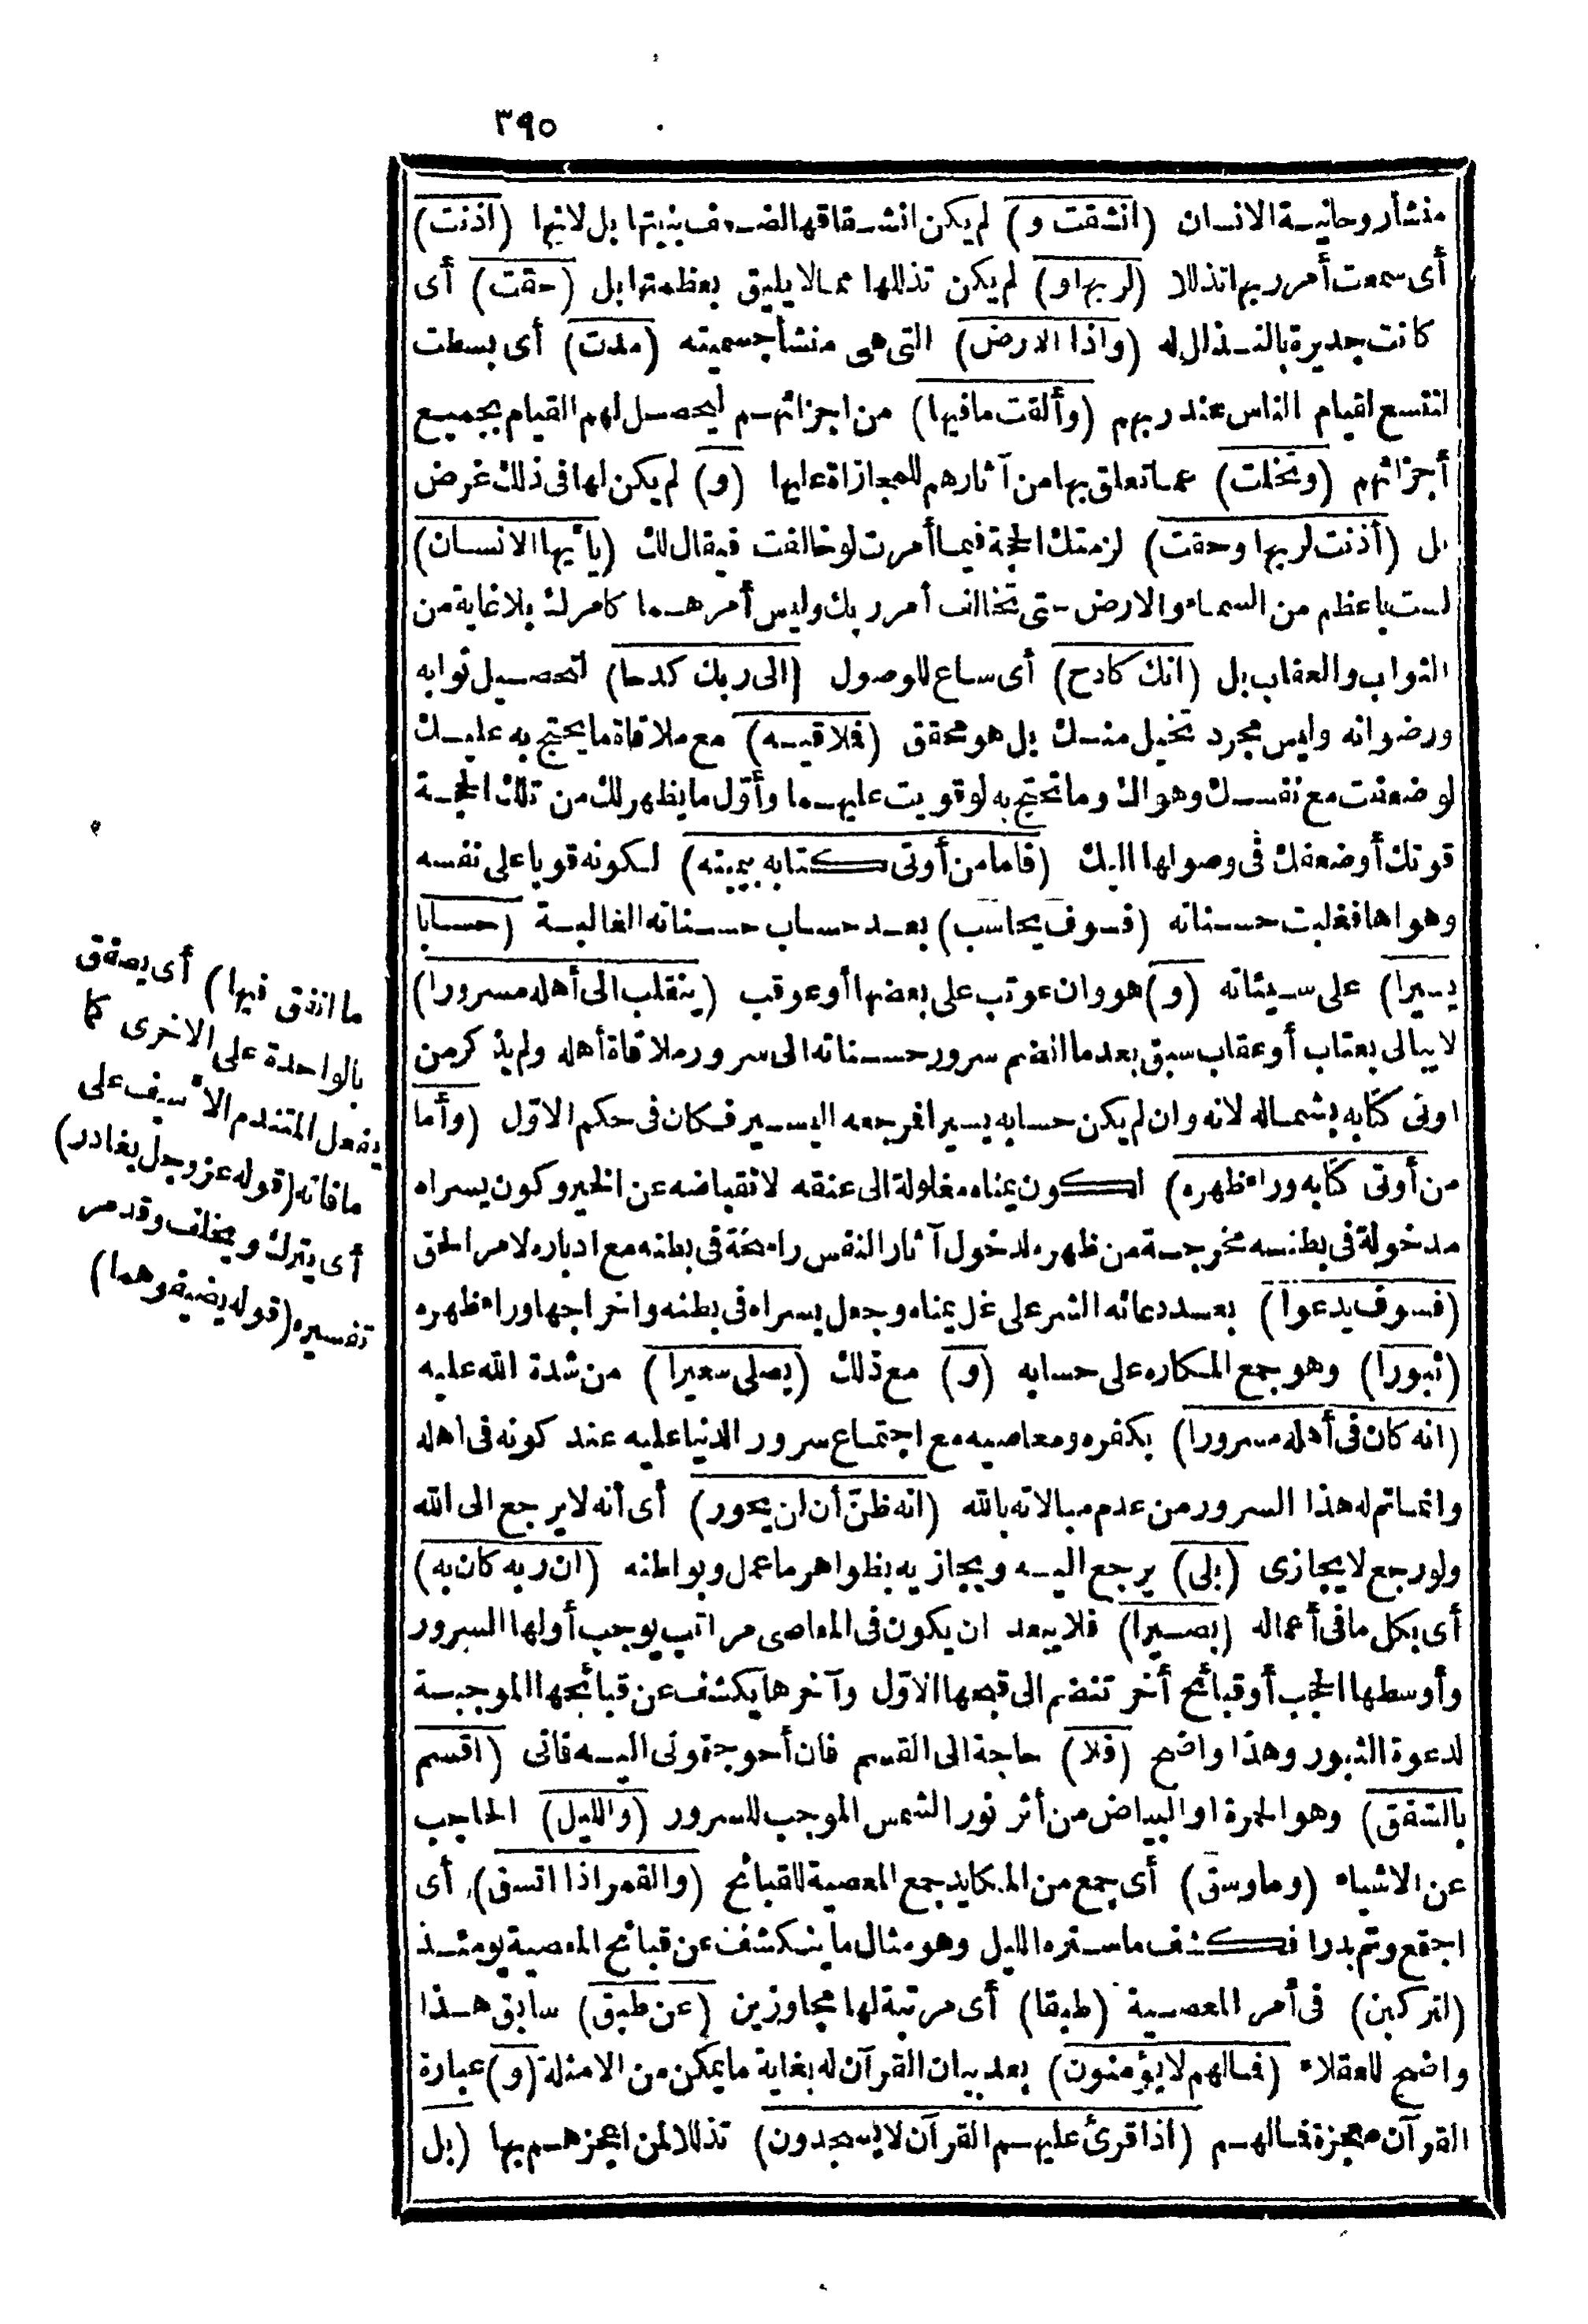 ٣٩٥
منشأ روحانية الانسان (انشقت و) لم يكن انشقاقها لضعف بنيتها بل لانها (أذنت)
أى سمعت أمر ربها تذللا (لربها و) لم يكن تذللها مما لا يليق بعظمتها بل (حقت) أى
كانت جديرة بالتذلل له (واذا الارض) التى هى منشأ جسميته (مدت) أى بسطت
لتتسع لقيام الناس عند ربهم (وألقت ما فيها) من اجزائهم ليحصل لهم القيام بجميع
أجزائهم (وتخلت) عما تعلق بها من آثارهم للمجازاة عليها (و) لم يكن لها فى ذلك غرض
بل (أذنت لربها وحقت) لزمتك الحجة فيما أمرت لو خالفت فيقال لك (يا أيها الانسان)
لست باعظم من السماء والارض حتى تخالف أمر ربك وليس أمرهما كامرك بلا غاية من
الثواب والعقاب بل (انك كادح) أى ساع للوصول (الى ربك كدحا) لتحصيل ثوابه
ورضوانه وليس مجرد تخيل منك بل هو محقق (فملاقيه) مع ملاقاة ما يحتج به عليك
لو ضعفت مع نفسك وهواك وما تحتج به لو قويت عليهما وأول ما يظهر لك من تلك الحجة
قوتك أو ضعفك فى وصولها اليك (فاما من أوتى كتابه بيمينه) لكونه قويا على نفسه
وهواها فغلبت حسناته (فسوف يحاسب) بعد حساب حسناته الغالبة (حسابا
يسيرا) على سيئاته (و) هو وان عوتب على بعضها أو عوقب (ينقلب الى أهله مسرورا)
لا يبالى بعتاب أو عقاب سبق بعدما انضم سرور حسناته الى سرور ملاقاة أهله ولم يذكر من
اوتى كتابه بشماله لانه وان لم يكن حسابه يسيرا فمرجعه اليسير فكان فى حكم الاوّل (وأما
من أوتى كتابه وراء ظهره) لكون يمناه مغلولة الى عنقه لانقباضه عن الخير وكون يسراه
مدخولة فى بطنه مخرجة من ظهره لدخول آثار النفس راسخة فى بطنه مع ادباره لامر الحق
(فسوف يدعوا) بعد دعائه الشر على غل يمناه وجعل يسراه فى بطنه واخراجها وراء ظهره
(ثبورا) وهو جمع المكاره على حسابه (و) مع ذلك (يصلى سعيرا) من شدة الله عليه
(انه كان فى أهله مسرورا) بكفره ومعاصيه مع اجتماع سرور الدنيا عليه عند كونه فى أهله
وانما تم له هذا السرور من عدم مبالاته بالله (انه ظنّ أن لن يحور) أى أنه لا يرجع الى الله
ولو رجع لا يجازى (بلى) يرجع اليه ويجازيه بظواهر ما عمل وبواطنه (ان ربه كان به)
أى بكل ما فى أعماله (بصيرا) فلا يبعد ان يكون فى المعاصى مراتب يوجب أولها السرور
وأوسطها الحجب أو قبائح أخر تنضم الى قبحها الاوّل وآخرها يكشف عن قبائحها الموجبة
لدعوة الثبور وهذا واضح (فلا) حاجة الى القسم فان أحوجتمونى اليه فانى (اقسم
بالشفق) وهو الحمرة او البياض من أثر نور الشمس الموجب للسرور (والليل) الحاجب
عن الاشياء (وما وسق) أى جمع من المكايد جمع المعصية للقبائح (والقمر اذا اتسق) أى
اجتمع وتم بدرا فكشف ما ستره الليل وهو مثال ما ينكشف عن قبائح المعصية يومئذ
(لتركبن) فى أمر المعصية (طبقا) أى مرتبة لها مجاوزين (عن طبق) سابق هذا
واضح للعقلاء (فما لهم لا يؤمنون) بعد بيان القرآن له بغاية ما يمكن من الامثلة (و) عبارة
القرآن معجزة فما لهم (اذا قرئ عليهم القرآن لا يسجدون) تذللا لمن اعجزهم بها (بل
ما انفق فيها) أى يصفق
بالواحدة على الاخرى كما
يفعل المتندم الاسيف على
ما فاته (قوله عز وجل يغادر)
أى يترك ويخلف وقد مر
تفسيره (قوله يضيفوهما)